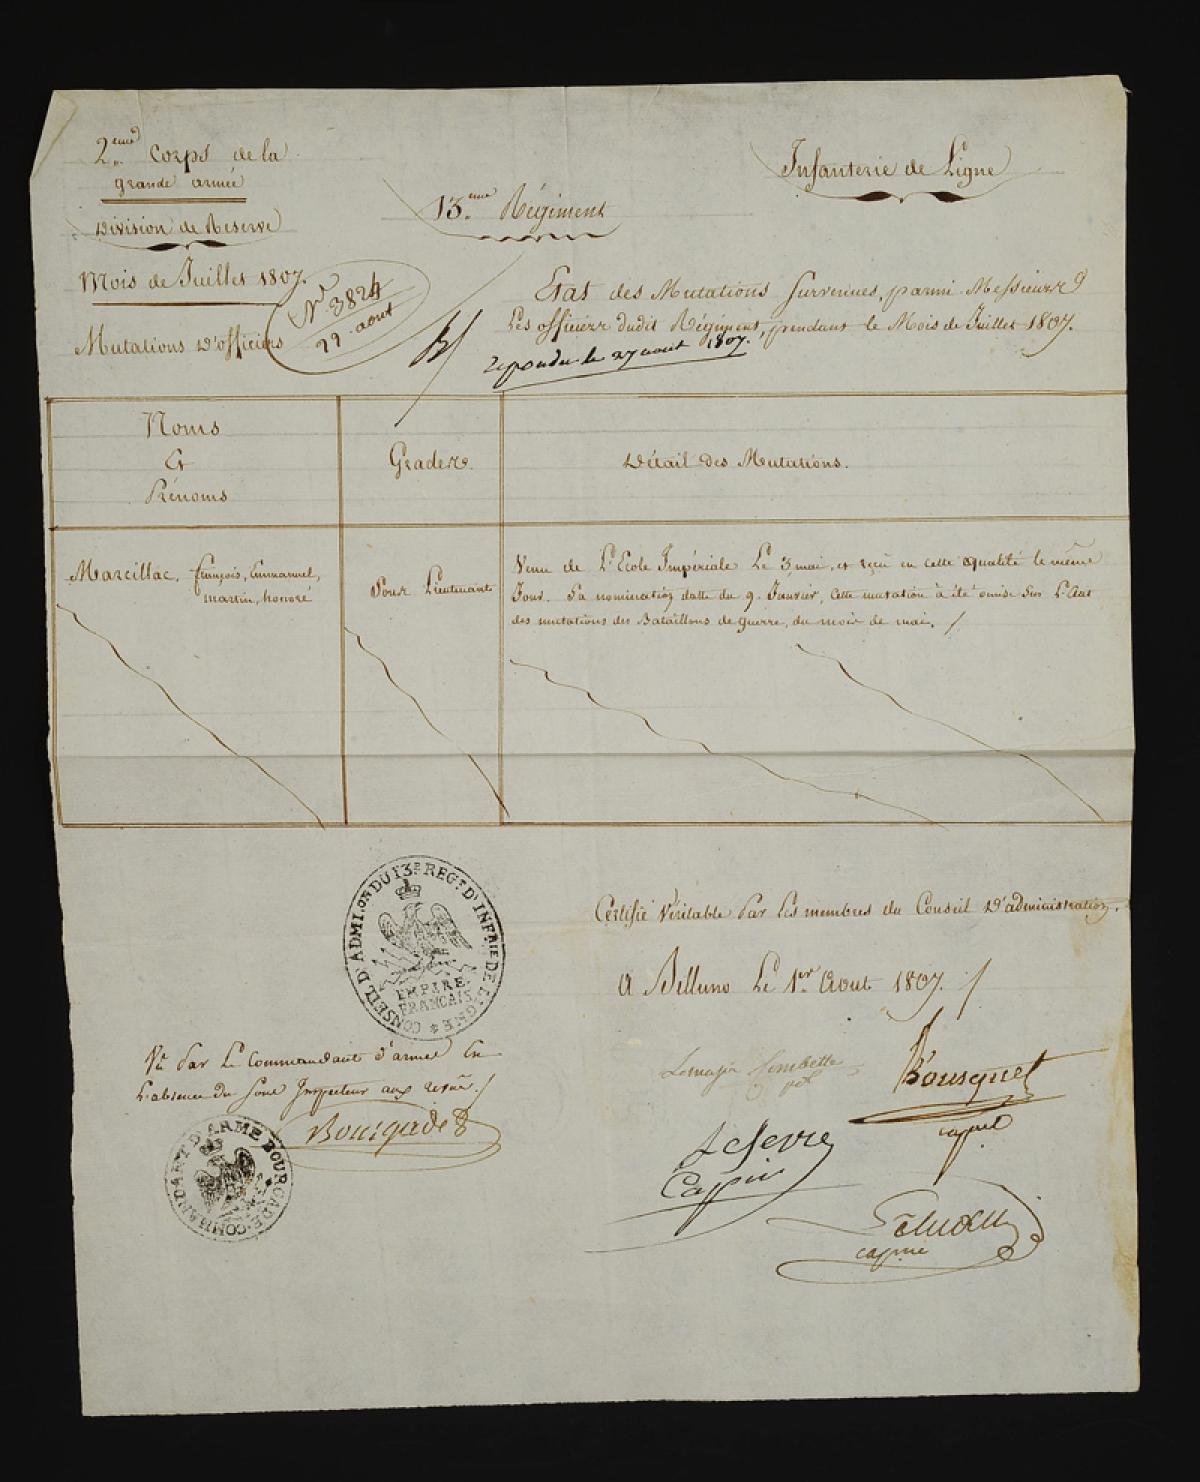 2.eme Corps de la
grande armée
Division de Reserve
Mois de Juillet 1807.
Mutations D'officiers
N° 3824
22 aout
13.eme Régiment
Infanterie de Ligne
Etat des Mutations Survenues, parmi Messieurs
Les officiers dudit Régiment, pendant le Mois de Juillet 1807.
repondu le 27 aout 1807.
Noms
Et
Prénoms
Grades.
Détail des Mutations.
Marcillac, françois, Emmanuel,
martin, honoré
Sous Lieutenant
Venu de L'Ecole Impériale Le 3 mai, et reçu en cette qualité le même
Jour. Sa nomination datte du 9. Janvier, Cette mutation à été omise sur L'Etat
des mutations des Bataillons de Guerre, du mois de mai.
CONSEIL D'ADMI.ON DU 13.E REG.T D'INFA.IE DE LIGNE
EMPIRE
FRANCAIS
Certifié Véritable Par Les membres du Conseil D'administration.
A Belluno Le 1.er Aout 1807.
Vu Par Le Commandant d'armes En
L'absence du Sous Inspecteur aux revues
Bourgade
COMMANDANT D'ARME BOURGADE
Le major
Bousquet
capne
Lefevre
Capne
capne